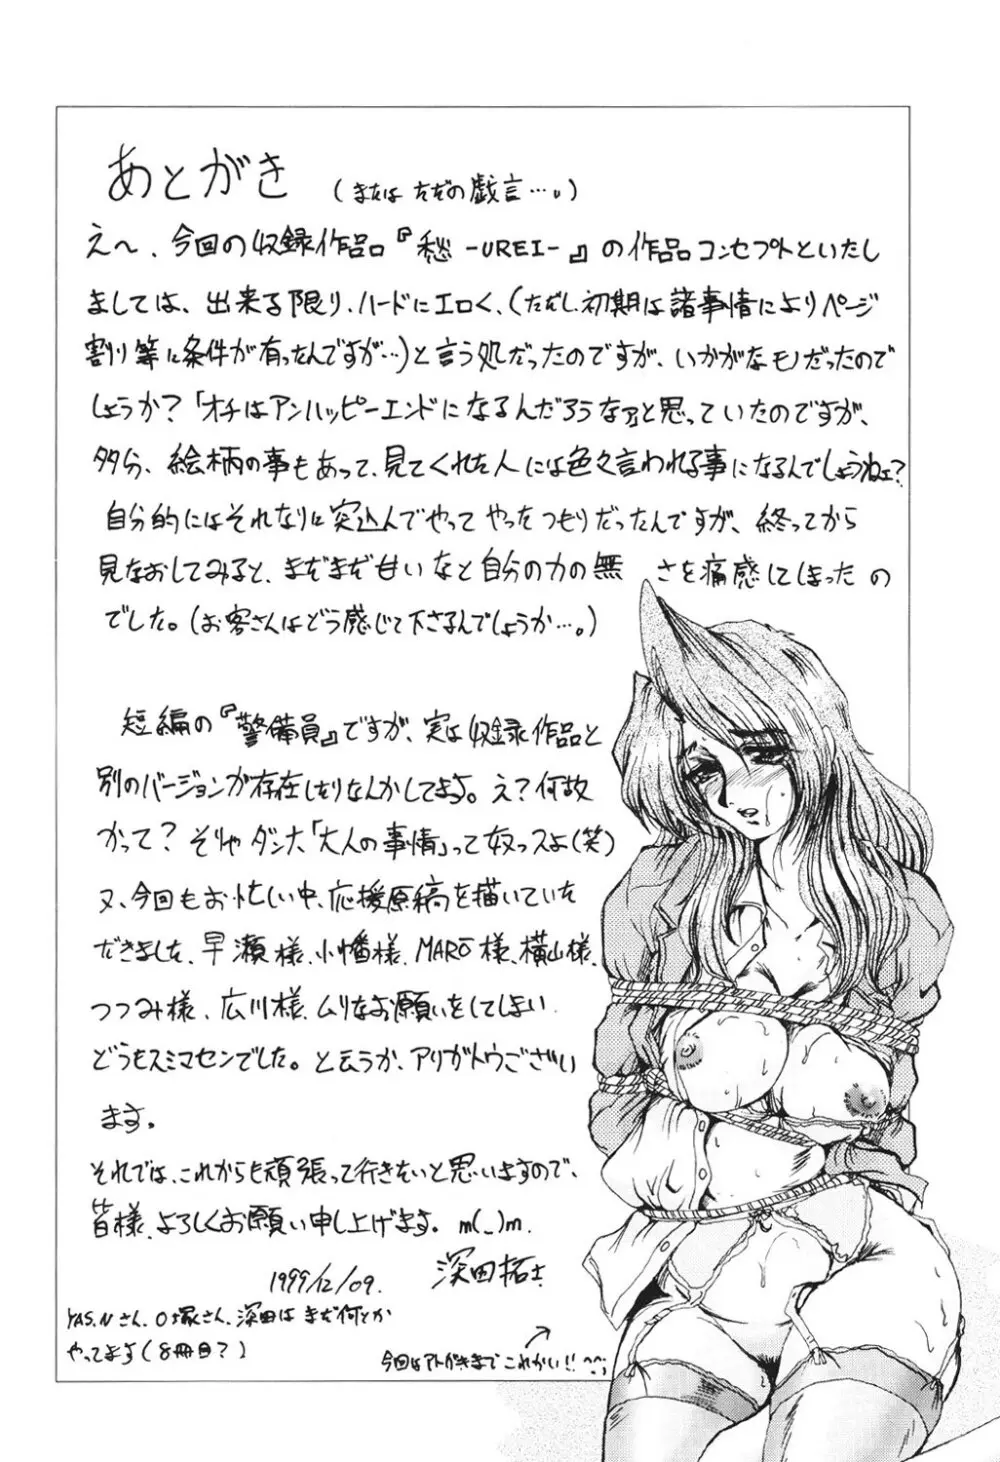 あとがき (またはただの戯言…。)
えー、今回の収録作品『愁 -UREI- 』の作品コンセプトといたし
ましては、出来る限り、ハードにエロく、(ただし、初期は諸事情によりページ
割り等に条件が有ったんですが…)と言う処だったのですが、いかがなモノだったので
しょうか?「オチはアンハッピーエンドになるんだろうなァと思っていたのですが、
多分、絵柄の事もあって、見てくれた人には色々言われる事になるんでしょうねェ?
自分的にはそれなりに突込んでやってやったつもりだったんですが、終ってから
見なおしてみると、まだまだ甘いなと自分の力の無さを痛感してしまったの
でした。(お客さんはどう感じて下さるんでしょうか…。)
短編の『警備員』ですが、実は収録作品と
別のバージョンが存在したりなんかしてます。え?何故
かって?そりゃダンナ「大人の事情」って奴っスよ(笑)
又、今回もお忙しい中、応援原稿を描いていた
だきました、早瀬様、小幡様、MARO様、横山様、
つつみ様、広川様、ムリなお願いをしてしまい
どうもスミマセンでした。と云うか、アリガトウござい
ます。
それでは、これからも頑張って行きたいと思いますので、
皆様、よろしくお願い申し上げます。m(_)m.
1999/12/09. 深田拓士
YAS.Nさん、O塚さん、深田はまだ何とか
やってます(8冊目?)
今回はアトがきまでこれかい!!